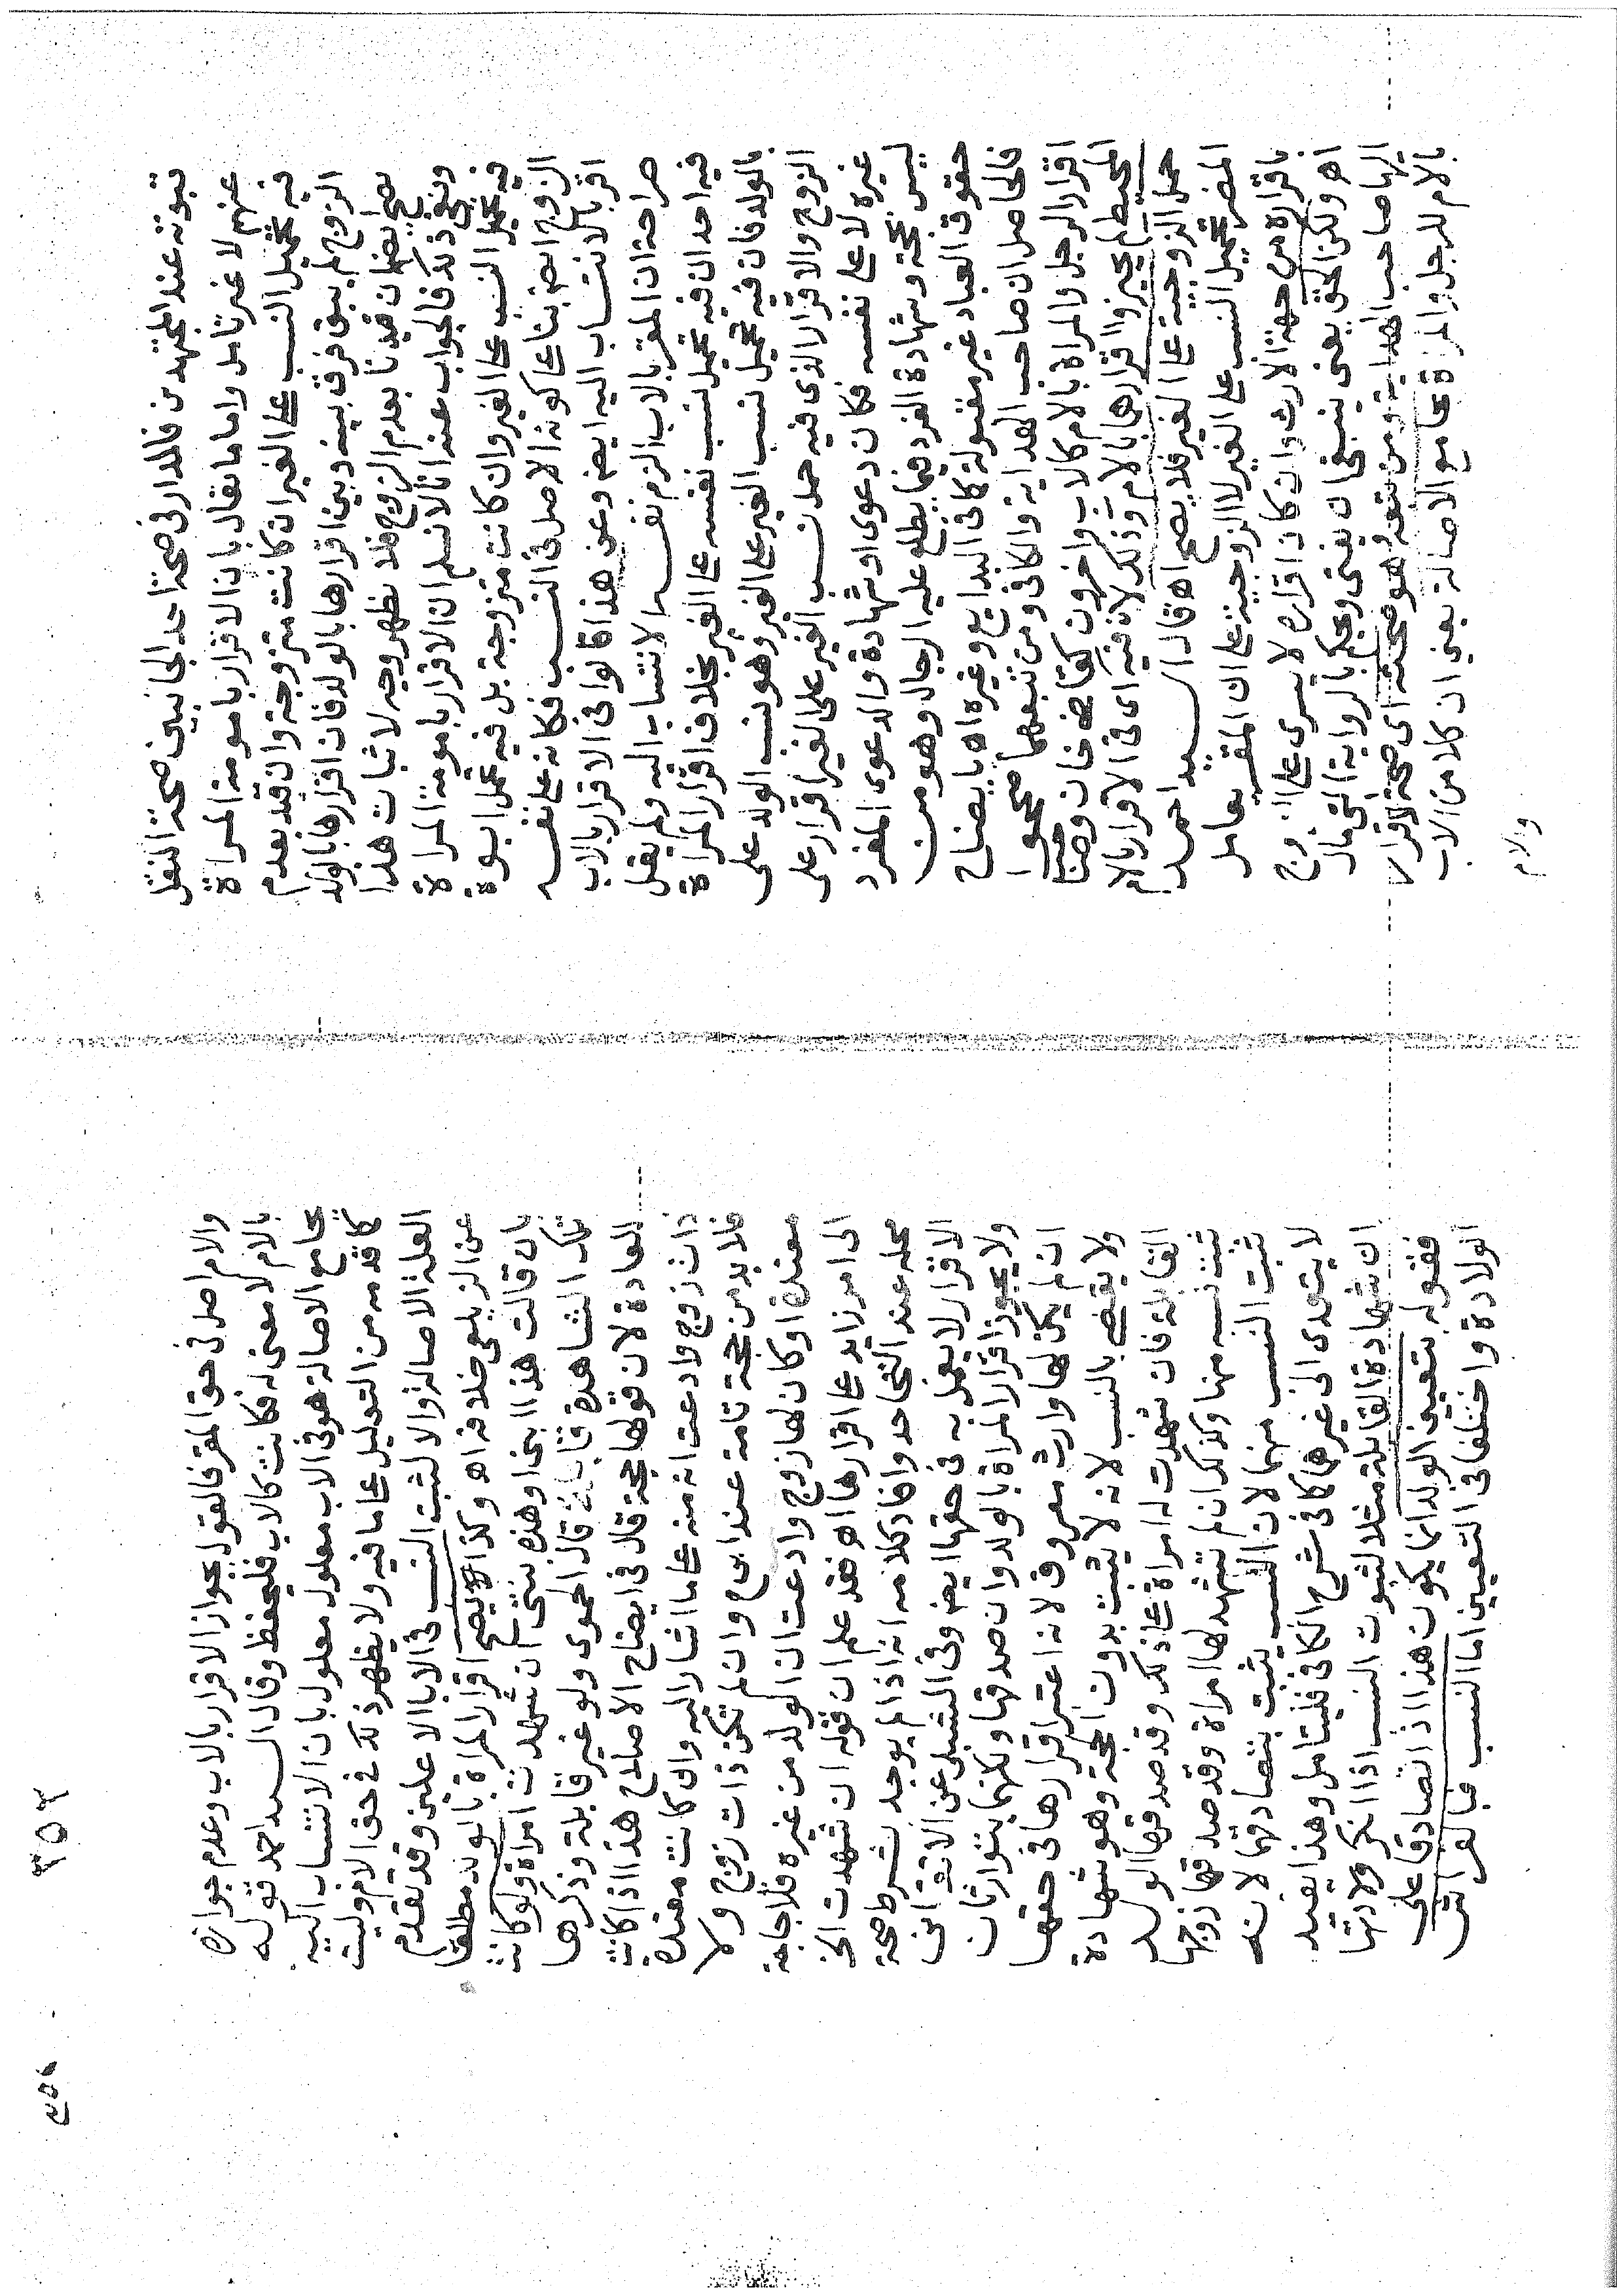 ثبوته عند المجتهدين فالمدار في صحة احد الجانبين صحة النقل
عنهم لا غير تامل واما ما يقال بان الاقرار بامومة المراة
فيه تحميل النسب على الغير ان كانت متزوجة وان قيد بعدم
الزوج لم يبق فرق بينه وبين اقرارها بالولد فان اقرارها بالولد
يصح ايضا ان قيدنا بعدم الزوج فلا يظهر وجه لاثبات هذا
ونفي ذلك فالجواب عنه انا لا نسلم ان الاقرار بامومة المراة
فيه تحميل النسب على الغير وان كانت متزوجة بل فيه تحمل ابوة
الزوج ايضا بناء على كونه الاصل في النسب فكانه على نفسه
اقر بالانتساب اليه ايضا وعن هذا قالوا في الاقرار بالاب
صراحة ان المقر بالاب الزم نفسه الانتساب اليه ولم يقل
فيه احد ان فيه تحميل نسب نفسه على الغير بخلاف اقرار المراة
بالولد فان فيه تحميل نسب الغير على الغير وهو نسب الولد على
الزوج والاقرار الذي فيه حمل نسب الغير على الغير اقرار على
غيره لا على نفسه فكان دعوى او شهادة والدعوى المفرد
ليس بحجة وشهادة الفرد فيما يطلع عليه الرجال وهو من
حقوق العباد غير مقبولة كما في البدايع وغيره اه بايضاح
فالحاصل ان صاحب الهداية والكافي ومن تبعهما صححوا
اقرار الرجل والمراة بالام كالاب واخرون كقاضيخان وصاحب
المحيط لم يجيزوا اقرارهما بالام وذلك لان فيه اي في الاقرار بالام
حمل الزوجية على الغير فلا يصح اه قال السيد احمد
المضر تحميل النسب على الغير لا الزوجية على ان المقر يعامل
باقراره من جهة الارث وان كان اقراره لا يسري على
اه ولكن الحق يعني ينبغي ان يفتى ويحكم بالرواية التي مال
اليها صاحب الهداية ومن تبعه وهو صحته اي صحة الاقرار
بالام للرجل والمراة بجامع الاصالة يعني ان كلا من الاب
والام
٣٥٢
والام اصل في حق المقر فالقول بجواز الاقرار بالاب وعدم جوازه
بالام لا معنى له فكانت كالاب فليحفظ وقال السيد احمد قوله
بجامع الاصالة هو في الاب معلول بان الانتساب اليه
كما قدمه من التوليل على ما فيه ولا يظهر ذلك في حق الام وليت
العلة الاصالة والا لثبت النسب في الابا الا علين وقد تقدم
عن الزيلعي خلافه اه وكذا يصح اقرار المراة بالولد مطلقا
بان قالت هذا ابني او هذه بنتي ان شهدت امراة ولو كانت
تلك الشاهدة قابلة قال الحموي ولو غير قابلة وذكرها
العادة لان قولها حجة قال في ايضاح الاصلاح هذا اذا كانت
ذات زوج وادعت انه منه على ما اشار اليه وان كانت معتدة
فلا بد من حجة تامة عند ابي ح وان لم تكن ذات زوج ولا
معتدة او كان لها زوج وادعت ان الولد من غيره فلا حاجة
الى امر زايد على اقرارها اه فقد علم ان قوله ان شهدت الخ
محله عند التجاحد وافاد كلامه انه اذا لم يوجد شرط صحة
الاقرار لا يعمل به في حقها ايضا وفي الشبلي عن الاتقاني
ولا يجوز اقرار المراة بالولد وان صدقها ولكنهما يتوارثان
ان لم يكن لها وارث معروف لانه اعتبر اقرارها في حقها
ولا يقضى بالنسب لانه لا يثبت بدون الحجة وهو شهادة
القابلة فان شهدت له امراة على ذلك وقد صدقها الولد
ثبت نسبه منها وكذلك ان لم تشهد لها امراة وقد صدقها زوجها
ثبت النسب منهما لان النسب يثبت بتصادقهما لانه
لا يتعدى الى غيرهما كما في شرح الكافي فليتامل وهذا يفيد
ان شهادة القابلة مثلا لثبوت النسب اذا انكر ولادتها
فقوله بتعيين الولد انما يكون هذا اذا تصادقا على
الولادة واختلفا في التعيين اما النسب فبالفراش